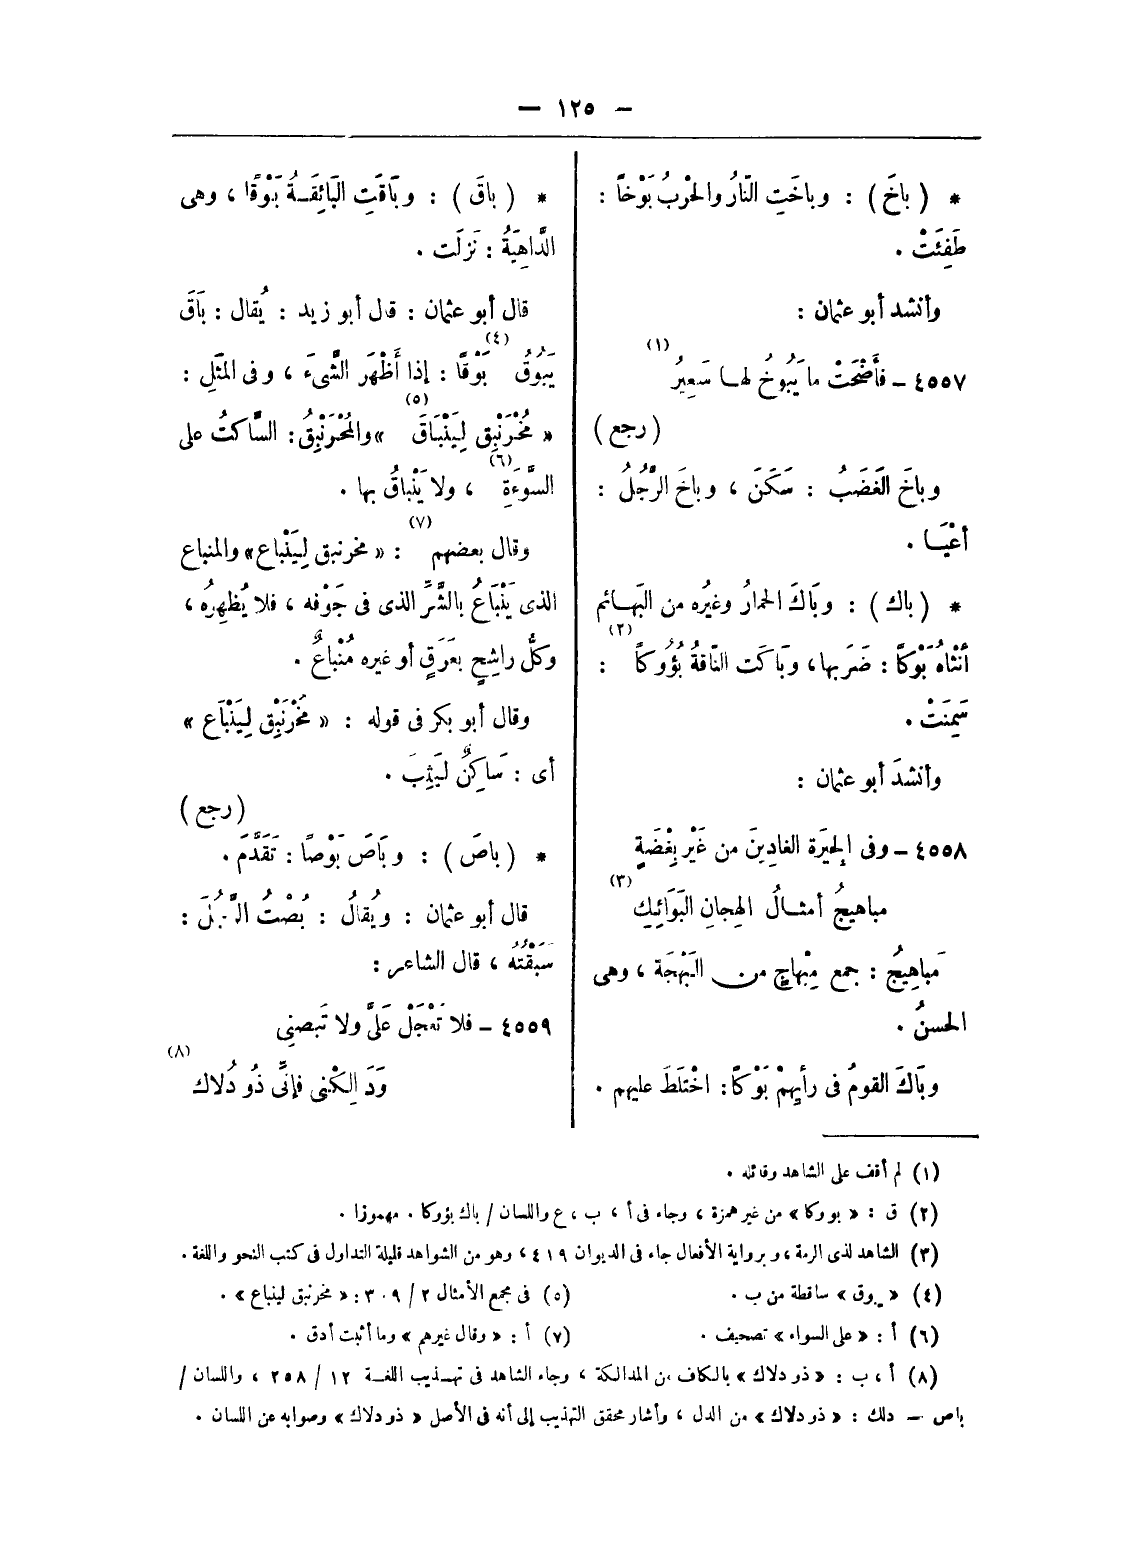 — ١٢٥ —
* ( باخَ ) : وباخَتِ النّارُ والحَرْبُ بَوْخاً :
طَفِئَتْ .
وأنشد أبو عثمان :
٤٥٥٧ ـ فأَضْحَتْ ما يَبُوخُ لهـا سَعِيرُ (١)
( رجع )
وباخَ الغَضَبُ : سَكَنَ ، وباخَ الرَّجُلُ :
أعْيَـا .
* ( باك ) : وبَاكَ الحمارُ وغيرُه من البَهـائم
أُنْثاهُ بَوْكاً : ضَرَبها، وبَاكَت النّاقةُ بُؤُوكاً (٢) :
سَمِنَتْ .
وأنشدَ أبو عثمان :
٤٥٥٨ ـ وفى الحِيرَة الغادِينَ من غَيْرِ بِغْضَةٍ
مباهيجُ أمثـالُ الهِجانِ البَوَائِكِ (٣)
مَباهِيجُ : جمع مِبْهاجٍ من البَهْجَة ، وهى
الحسنُ .
وبَاكَ القومُ فى رأيِهِمْ بَوْكاً : اخْتَلَطَ عليهم .
* ( باقَ ) : وبَاقَتِ البَائِقَـةُ بَوْقًا ، وهى
الدَّاهِيَةُ : نَزلَت .
قال أبو عثمان : قال أبو زيد : يُقال : بَاقَ
يَبُوقُ (٤) بَوْقًا : إذا أَظْهَر الشَّىءَ ، وفى المَثَلِ :
« مُخْرَنْبِق لِيَنْبَاقَ (٥) » والمُخْرَنْبِقُ : السَّاكتُ على
السَّوْءَةِ (٦) ، ولا يَنْباقُ بها .
وقال بعضهم (٧) : « مخرنبق لِيَنْباع » والمنباع
الذى يَنْبَاعُ بالشَّرِّ الذى فى جَوْفه ، فلا يُظهِرُه ،
وكلُّ راشِحٍ بعَرَقٍ أو غيره مُنْباعٌ .
وقال أبو بكر فى قوله : « مُخْرَنْبِق لِيَنْبَاع »
أى : سَاكِنٌ لِيَثِبَ .
( رجع )
* ( باصَ ) : وبَاصَ بَوْصًا : تَقَدَّمَ .
قال أبو عثمان : ويُقالُ : بُصْتُ الرَّجُلَ :
سَبَقْتُهُ ، قال الشاعر :
٤٥٥٩ ـ فلا تَعْجَلْ عَلَىَّ ولا تَبصنِى
وَدَالِكْنِى فإنىِّ ذُو دُلاك (٨)
(١) لم أقف على الشاهد وقائله .
(٢) ق : « بووكا » من غير همزة ، وجاء فى أ ، ب ، ع واللسان / باك بؤوكا . مهموزا .
(٣) الشاهد لذى الرمة ، وبرواية الأفعال جاء فى الديوان ٤١٩ ، وهو من الشواهد قليلة التداول فى كتب النحو واللغة .
(٤) « يبوق » ساقطة من ب .
(٥) فى مجمع الأمثال ٢ / ٣٠٩ : « مخرنبق لينباع » .
(٦) أ : « على السواء » تصحيف .
(٧) أ : « وقال غيرهم » وما أثبت أدق .
(٨) أ ، ب : « ذو دلاك » بالكاف من المدالكة ، وجاء الشاهد فى تهـذيب اللغـة ١٢ / ٢٥٨ ، واللسان /
باص — دلك : « ذو دلاك » من الدل ، وأشار محقق التهذيب إلى أنه فى الأصل « ذو دلاك » وصوابه عن اللسان .